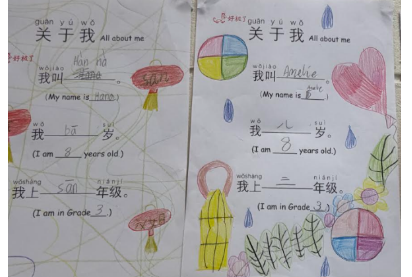 guān yú wǒ
关于我 All about me
wǒjiào
我叫 。
(My name is Hana.)
wǒ suì
我 bā 岁。
(I am 8 years old.)
wǒshàng niánjí
我上 sān 年级。
(I am in Grade 3.)
好极了
guān yú wǒ
关于我 All about me
wǒjiào
我叫 Amelie 。
(My name is )
wǒ suì
我 八 岁。
(I am 8 years old.)
wǒshàng niánjí
我上 三 年级。
(I am in Grade 3.)